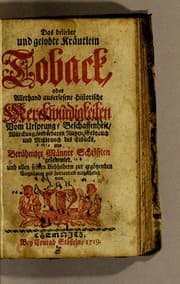 Das beliebte
und gelobte Kräutlein
Toback,
oder
Allerhand auserlesene Historische
Merckwürdigkeiten
Vom Ursprung / Beschaffenheit,
Würckung, sonderbaren Nutzen, Gebrauch
und Mißbrauch des Tobacks,
aus
Berühmter Männer Schrifften
gesammlet,
und allen
Liebhabern zur
von
CHEMNITZ,
Bey Conrad Stößeln / 1719.